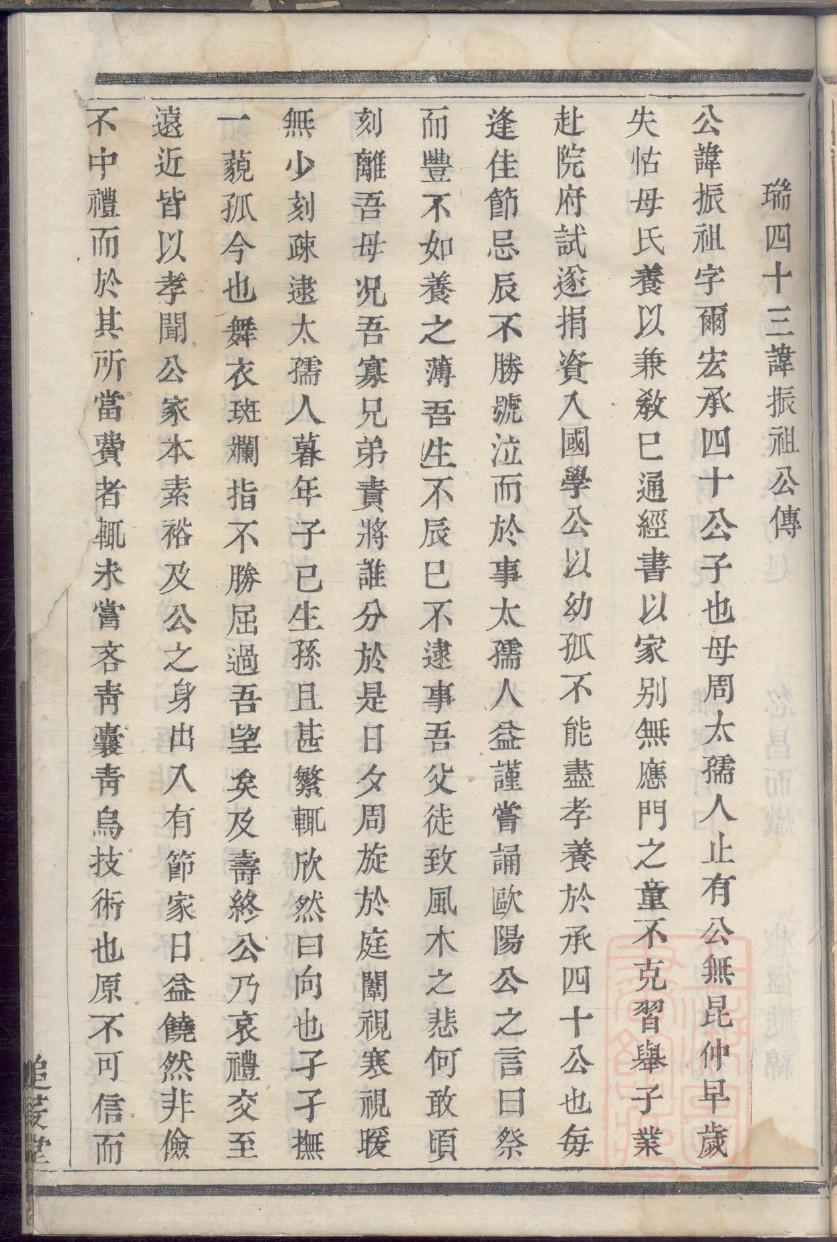 瑞四十三諱振祖公傳
公諱振祖字爾宏承四十公子也母周太孺人止有公無昆仲早歲
失怙母氏養以兼敎巳通經書以家别無應門之童不克習舉子業
赴院府試遂捐資入國學公以幼孤不能盡孝養於承四十公也每
逢佳節忌辰不勝號泣而於事太孺人益謹嘗誦歐陽公之言曰祭
而豐不如養之薄吾生不辰巳不逮事吾父徒致風木之悲何敢頃
刻離吾母况吾寡兄弟責將誰分於是日夕周旋於庭闈視寒視暖
無少刻疎逮太孺人暮年子已生孫且甚繁輒欣然曰向也孑孑撫
一藐孤今也舞衣斑斕指不勝屈過吾望矣及壽終公乃哀禮交至
遠近皆以孝聞公家本素裕及公之身出入有節家日益饒然非儉
不中禮而於其所當費者輒未嘗吝靑囊靑烏技術也原不可信而
堂